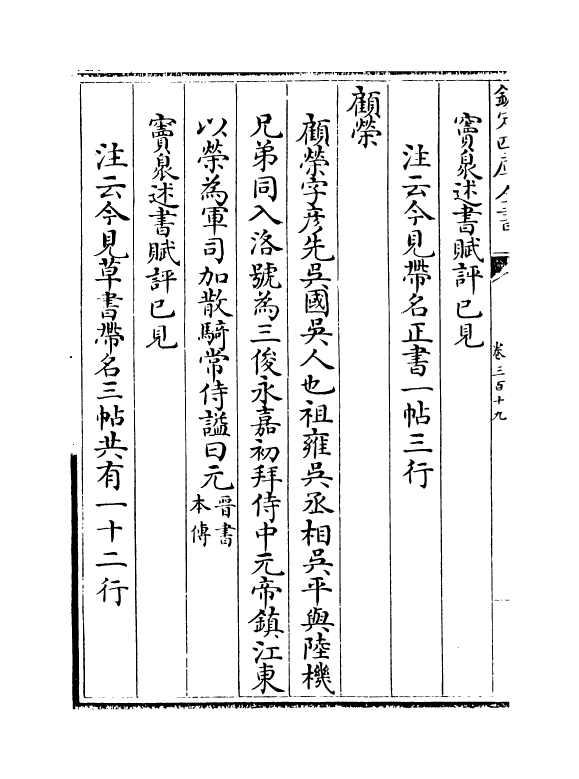 欽定四庫全書
卷三百十九
竇臮述書賦評已見
注云今見帶名正書一帖三行
顧榮
顧榮字彦先吳國吳人也祖雍吳丞相吳平與陸機
兄弟同入洛號為三俊永嘉初拜侍中元帝鎮江東
以榮為軍司加散騎常侍諡曰元晉書本傳
竇臮述書賦評已見
注云今見草書帶名三帖共有一十二行